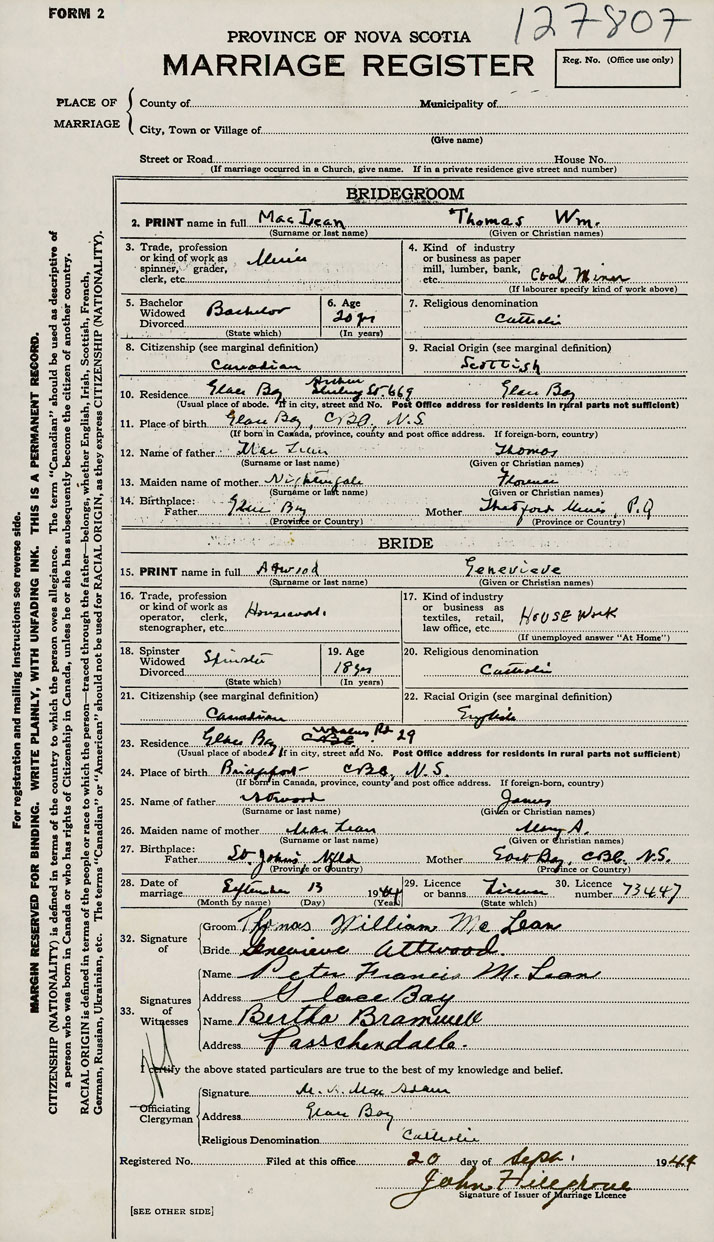 FORM 2
127807
PROVINCE OF NOVA SCOTIA
MARRIAGE REGISTER
Reg. No. (Office use only)
PLACE OF MARRIAGE
County of Municipality of
City, Town or Village of
(Give name)
Street or Road House No.
(If marriage occurred in a Church, give name. If in a private residence give street and number)
BRIDEGROOM
2. PRINT name in full MacLean Thomas Wm.
(Surname or last name) (Given or Christian names)
3. Trade, profession or kind of work as spinner, grader, clerk, etc. Miner
4. Kind of industry or business as paper mill, lumber, bank, etc. Coal Miner
(If labourer specify kind of work above)
5. Bachelor Widowed Divorced Bachelor
(State which)
6. Age 20 yrs
(In years)
7. Religious denomination
Catholic
8. Citizenship (see marginal definition)
Canadian
9. Racial Origin (see marginal definition)
Scottish
10. Residence Glace Bay Sterling St 669 Glace Bay
(Usual place of abode. If in city, street and No. Post Office address for residents in rural parts not sufficient)
11. Place of birth Glace Bay, C.B.Co., N.S.
(If born in Canada, province, county and post office address. If foreign-born, country)
12. Name of father MacLean Thomas
(Surname or last name) (Given or Christian names)
13. Maiden name of mother Nightingale Florence
(Surname or last name) (Given or Christian names)
14. Birthplace: Father Glace Bay Mother Thetford Mines, P.Q
(Province or Country) (Province or Country)
BRIDE
15. PRINT name in full Atwood Genevieve
(Surname or last name) (Given or Christian names)
16. Trade, profession or kind of work as operator, clerk, stenographer, etc. Housework
17. Kind of industry or business as textiles, retail, law office, etc. HOUSE WORK
(If unemployed answer "At Home")
18. Spinster Widowed Divorced Spinster
(State which)
19. Age 18 yrs
(In years)
20. Religious denomination
Catholic
21. Citizenship (see marginal definition)
Canadian
22. Racial Origin (see marginal definition)
English
23. Residence Glace Bay Rd 29
(Usual place of abode. If in city, street and No. Post Office address for residents in rural parts not sufficient)
24. Place of birth Bridgeport C.B.Co., N.S.
(If born in Canada, province, county and post office address. If foreign-born, country)
25. Name of father Atwood James
(Surname or last name) (Given or Christian names)
26. Maiden name of mother MacLean Mary A.
(Surname or last name) (Given or Christian names)
27. Birthplace: Father St. John's Nfld Mother East Bay, C.B.Co. N.S.
(Province or Country) (Province or Country)
28. Date of marriage September 13 1944
(Month by name) (Day) (Year)
29. Licence or banns License
(State which)
30. Licence number 73447
32. Signature of
Groom Thomas William McLean
Bride Genevieve Attwood.
33. Signatures of Witnesses
Name Peter Francis McLean
Address Glace Bay
Name Bertha Bramwell
Address Passchendaele.
I certify the above stated particulars are true to the best of my knowledge and belief.
Officiating Clergyman
Signature MacAdam
Address Glace Bay
Religious Denomination Catholic
Registered No. Filed at this office 20 day of Sept. 1944
John Hillgrove
Signature of Issuer of Marriage Licence
[SEE OTHER SIDE]
For registration and mailing instructions see reverse side.
MARGIN RESERVED FOR BINDING. WRITE PLAINLY, WITH UNFADING INK. THIS IS A PERMANENT RECORD.
CITIZENSHIP (NATIONALITY) is defined in terms of the country to which the person owes allegiance. The term "Canadian" should be used as descriptive of
a person who was born in Canada or who has rights of Citizenship in Canada, unless he or she has subsequently become the citizen of another country.
RACIAL ORIGIN is defined in terms of the people or race to which the person—traced through the father—belongs, whether English, Irish, Scottish, French,
German, Russian, Ukrainian, etc. The terms "Canadian" or "American" should not be used for RACIAL ORIGIN, as they express CITIZENSHIP (NATIONALITY).